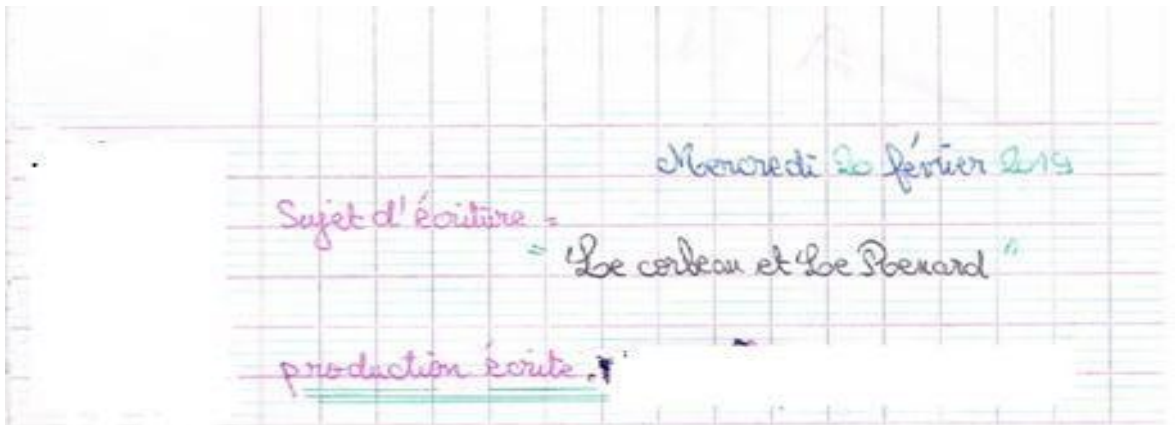 Mercredi 20 février 2019
Sujet d'écriture =
= "Le corbeau et Le Renard"
production écrite.